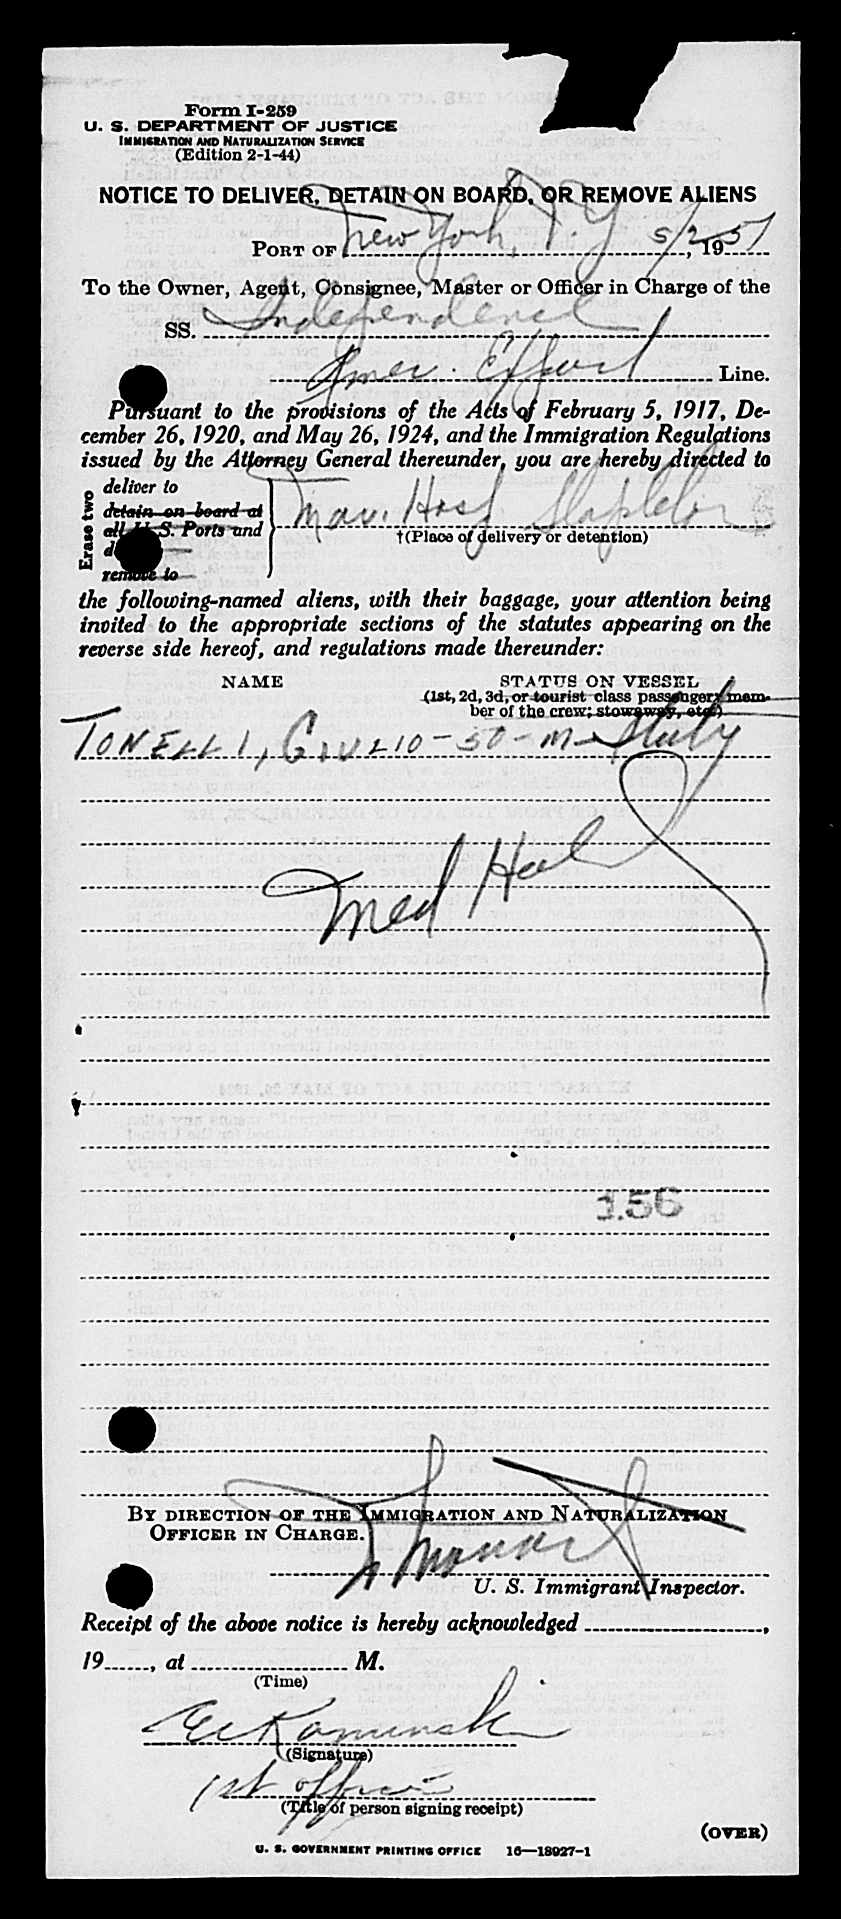 Form I-259
U. S. DEPARTMENT OF JUSTICE
IMMIGRATION AND NATURALIZATION SERVICE
(Edition 2-1-44)
NOTICE TO DELIVER, DETAIN ON BOARD, OR REMOVE ALIENS
PORT OF New York, N.Y 5/2, 1951
To the Owner, Agent, Consignee, Master or Officer in Charge of the
SS. Independence
Amer. Export Line.
Pursuant to the provisions of the Acts of February 5, 1917, De-
cember 26, 1920, and May 26, 1924, and the Immigration Regulations
issued by the Attorney General thereunder, you are hereby directed to
Erase two
deliver to
detain on board at
all U. S. Ports and
remove to
Mar. Hosp Stapleton
†(Place of delivery or detention)
the following-named aliens, with their baggage, your attention being
invited to the appropriate sections of the statutes appearing on the
reverse side hereof, and regulations made thereunder:
NAME STATUS ON VESSEL
(1st, 2d, 3d, or tourist class passenger; mem-
ber of the crew; stowaway, etc.)
TONELLI, GIULIO - 50 - M - Italy
Med Hold
156
BY DIRECTION OF THE IMMIGRATION AND NATURALIZATION
OFFICER IN CHARGE.
U. S. Immigrant Inspector.
Receipt of the above notice is hereby acknowledged ,
19 , at M.
(Time)
Kaminski
(Signature)
1st officer
(Title of person signing receipt)
(OVER)
U. S. GOVERNMENT PRINTING OFFICE 16—18927-1